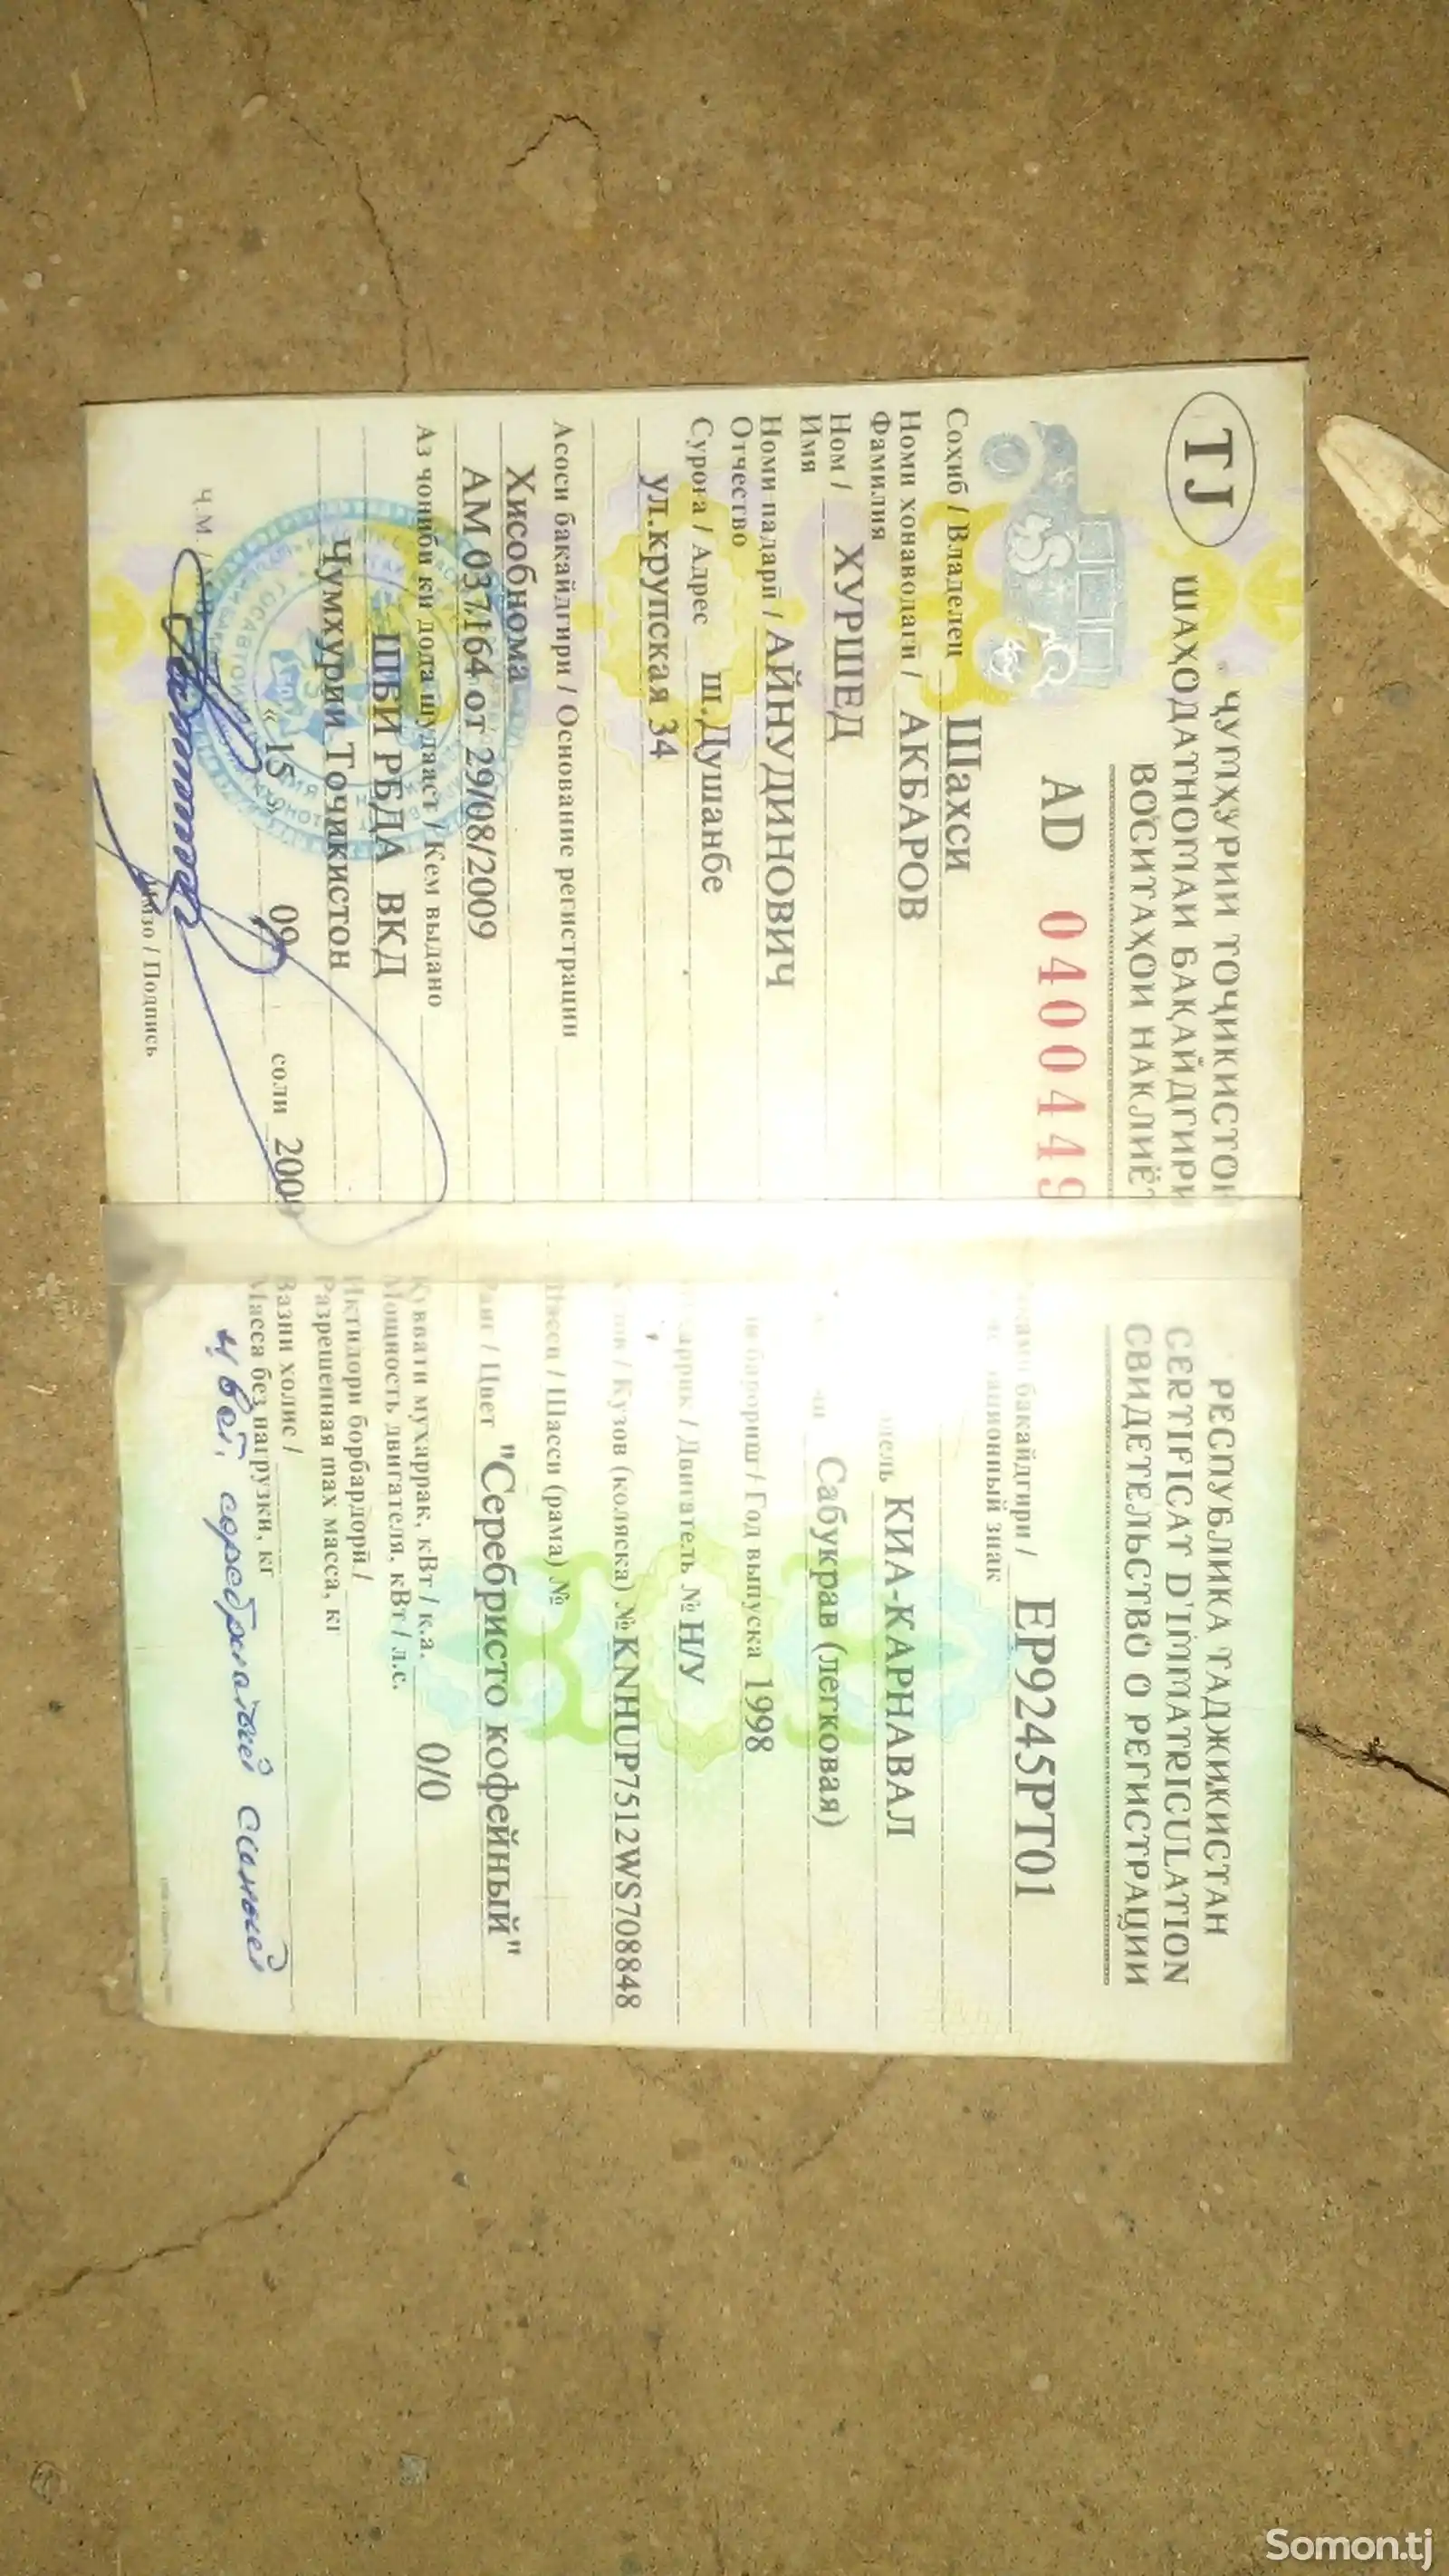 TJ
ҶУМҲУРИИ ТОҶИКИСТОН
ШАҲОДАТНОМАИ БАҚАЙДГИРИ
ВОСИТАҲОИ НАКЛИЁТ
AD 0400449
Соҳиб / Владелец Шахси
Номи хонаводаги / АКБАРОВ
Фамилия
Ном / ХУРШЕД
Имя
Номи падарӣ / АЙНУДИНОВИЧ
Отчество
Суроға / Адрес ш.Душанбе
ул.крупская 34
Асоси бакайдгири / Основание регистрации
Хисобнома
АМ 037164 от 29/08/2009
Аз ҷониби ки дода шудааст / Кем выдано
ШБИ РБДА ВКД
Ҷумхурии Тоҷикистон
« 15 » 09 соли 2009
Ҷ.М /
Имзо / Подпись
РЕСПУБЛИКА ТАДЖИКИСТАН
CERTIFICAT D'IMMATRICULATION
СВИДЕТЕЛЬСТВО О РЕГИСТРАЦИИ
бакайдгири / EP9245PT01
знак
КИА-КАРНАВАЛ
Сабукрав (легковая)
барориш / Год выпуска 1998
/ Двигатель № Н/У
/ Кузов (коляска) № KNHUP7512WS708848
Шасси / Шасси (рама) №
Ранг / Цвет "Серебристо кофейный"
Қуввати муҳаррак, кВт / к.а. 0/0
Мощность двигателя, кВт / л.с.
Иктидори борбардорӣ /
Разрешенная max масса, кг
Вазни холис /
Масса без нагрузки, кг
цвет. серебристый синий
Somon.tj